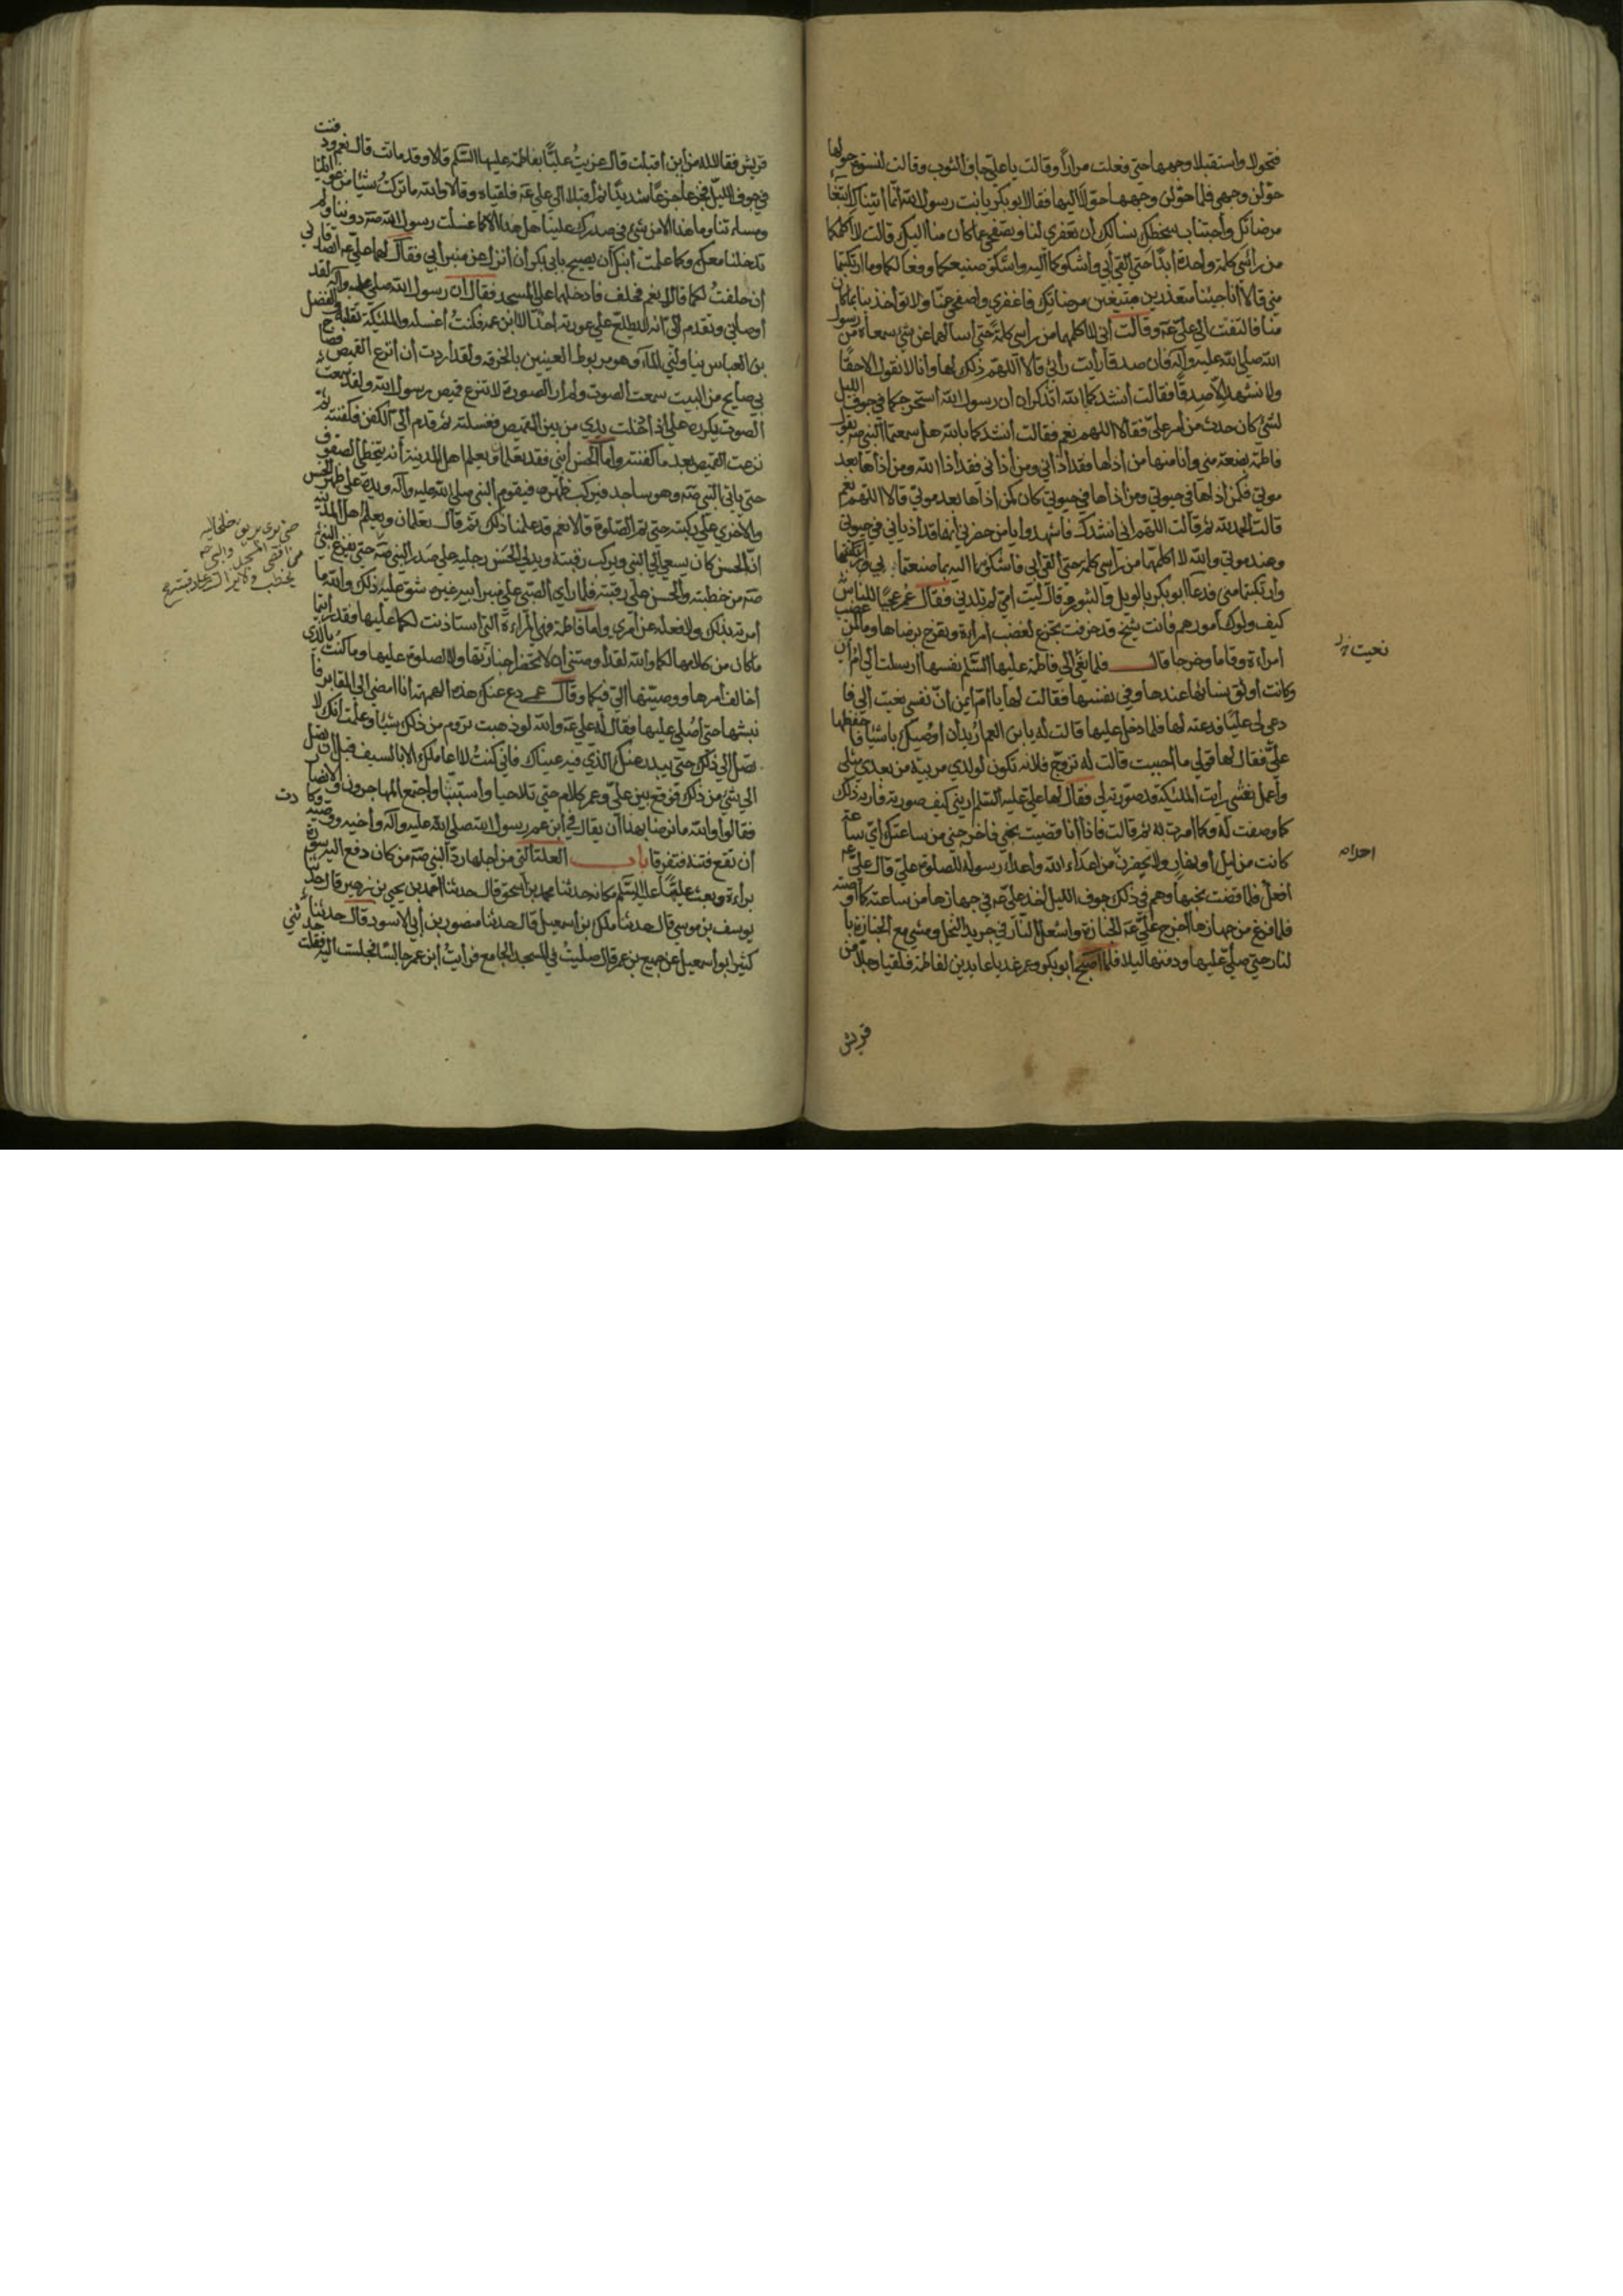 فتحولا واستقبلا وجهها حتى فعلت مرارا وقالت يا علي جاف الثوب وقالت لنسوة حولها
حولن وجهي فلما حولن وجهها حولا اليها فقال ابو بكر يا بنت رسول الله انما اتيناك ابتغاء
مرضاتك واجتناب سخطك نسالك ان تغفري لنا وتصفحي عما كان منا اليك قالت لا اكلمكما
من راسي كلمة واحدة ابدا حتى القى ابي واشكوكما اليه واشكو صنيعكما وفعالكما وما ارتكبتما
مني قالا انا جئنا معتذرين مبتغين مرضاتك فاغفري واصفحي عنا ولا تؤاخذينا بما كان
منا فالتفتت الى علي عه وقالت اني لا اكلمهما من راسي كلمة حتى اسالهما عن شئ سمعاه من رسول
الله صلى الله عليه وآله فان صدقا رايت رأيي قالا اللهم ذلك لها وانا لا نقول الا حقا
ولا نشهد الا صدقا فقالت انشدكما الله اتذكران ان رسول الله استخرجكما في جوف الليل
لشئ كان حدث من امر علي فقالا اللهم نعم فقالت انشدكما بالله هل سمعتما النبي صه يقول
فاطمة بضعة مني وانا منها من اذاها فقد اذاني ومن اذاني فقد اذا الله ومن اذاها بعد
موتي فكمن اذاها في حيوتي ومن اذاها في حيوتي كان كمن اذاها بعد موتي قالا اللهم نعم
قالت الحمد لله ثم قالت اللهم اني انشدك فاشهدوا يا من حضرني انهما قد اذياني في حيوتي
وعند موتي والله لا اكلمكما من راسي كلمة حتى القى ابي فاشكوكما اليه بما صنعتما بي
وارتكبتما مني فدعا ابو بكر بالويل والثبور وقال ليت امي لم تلدني فقال عمر عجبا للناس
كيف ولوك امورهم وانت شيخ قد خرفت تجزع لغضب امراءة وتفرح برضاها وما لمن غضب
امراءة وقاما وخرجا قال فلما نعي الى فاطمة عليها السلم نفسها ارسلت الى ام ايمن
وكانت اوثق نسائها عندها وفي نفسها فقالت لها يا ام ايمن ان نفسي نعيت الي فا
دعي لي عليا فدعته لها فلما دخل عليها قالت له يا بن العم اريد ان اوصيك باشياء فاحفظها
علي فقال لها قولي ما احببت قالت له تزوج فلانة تكون لولدي مربية من بعدي مثلي
واعمل نعشي رايت الملئكة قد صورته لي فقال لها علي عليه السلم اريني كيف صورته فارته ذلك
كما وصفت له وكما امرت به ثم قالت فاذا انا قضيت نحبي فاخرجني من ساعتك اي ساعة
كانت من ليل او نهار ولا يحضرن من اعداء الله واعداء رسوله للصلوة علي قال علي عه
افعل فلما قضت نحبها وهم في ذلك جوف الليل اخذ علي عه في جهازها من ساعته كما اوصته
فلما فرغ من جهازها اخرج علي عه الجنازة واشعل النار في جريد النخل ومشى مع الجنازة با
لنار حتى صلى عليها ودفنها ليلا فلما اصبح ابو بكر وعمر غدبا عايدين لفاطمة فلقيا رجلا من
قريش
نعيت
قريش فقالا له من اين اقبلت قال عزيت عليا بفاطمة عليها السلم قالا وقد ماتت قال نعم ودفنت
في جوف الليل فجزعا جزعا شديدا ثم اقبلا الى علي عه فلقياه وقالا والله ما تركت شيئا من غوايلنا
ومساءتنا وما هذا الا من شئ في صدرك علينا هل هذا الا كما غسلت رسول الله صه دوننا ولم
تدخلنا معك وكما علمت ابنك ان يصيح بابي بكر ان انزل عن منبر أبي فقال لهما علي عه اتصدقاني
ان حلفت لكما قالا نعم فحلف فادخلهما على المسجد فقال ان رسول الله صلى عليه وآله لقد
اوصاني وتقدم الي انه لا يطلع على عورته احد الا ابن عمه فكنت اغسله والملئكة تقلبه والفضل
بن العباس يناولني الماء وهو مربوط العينين بالخرقة ولقد اردت ان انزع القميص فصاح
بي صايح من البيت سمعت الصوت ولم ار الصورة لا تنزع قميص رسول الله ولقد سمعت
الصوت يكرره علي فادخلت يدي من بين القميص فغسلته ثم قدم الي الكفن فكفنته ثم
نزعت القميص بعد ما كفنته واما الحسن ابني فقد تعلمان ويعلم اهل المدينة انه يتخطى الصفوف
حتى ياتي النبي صه وهو ساجد فيركب ظهره فيقوم النبي صلى الله عليه وآله ويده على ظهر الحسن
والاخرى على ركبته حتى يتم الصلوة قالا نعم قد علمنا ذلك ثم قال تعلمان ويعلم اهل المدينة
ان الحسن كان يسعى الى النبي ويركب رقبته ويدلي الحسن رجليه على صدر النبي صه حتى يفرغ النبي
صه من خطبته والحسن على رقبته فلما راى الصبي على منبر ابيه غيره شق عليه ذلك والله ما
امرته بذلك ولا فعله عن امري واما فاطمة فهي المراءة التي استاذنت لكما عليها فقد رايتما
ما كان من كلامها لكما والله لقد اوصتني ان لا تحضرا جنازتها ولا الصلوة عليها وما كنت بالذي
اخالف امرها ووصيتها الي فيكما وقال عمر دع عنك هذه الهمهمة انا امضي الى المقابر فا
نبشها حتى اصلي عليها فقال له علي عه والله لو ذهبت تروم من ذلك شيئا وعلمت انك لا
تصل الى ذلك حتى يندر عنك الذي فيه عيناك فاني كنت لا اعاملك الا بالسيف قبل ان تصل
الى شئ من ذلك فوقع بين علي وعمر كلام حتى تلاحيا واستبا واجتمع المهاجرون والانصار
فقالوا والله ما نرضى بهذا ان يقال في ابن عم رسول الله صلى الله عليه وآله واخيه ووصيه وكادت
ان تقع فتنة فتفرقا باب العلة التي من اجلها رد النبي صه من كان دفع اليه سورة
براءة وبعث عليها عليا عليه السلم مكانه حدثنا محمد بن اسحق قال حدثنا احمد بن يحيى بن زهير قال حدثنا
يوسف بن موسى قال حدثنا ملك بن اسمعيل قال حدثنا منصور بن ابي الاسود قال حدثناء حدثني
كثير ابو اسمعيل عن جميع بن عمر قال صليت في المسجد الجامع فرايت ابن عمر جالسا فجلست اليه فقلت
حتى يرى بريق خلخاليه
من اقصى المسجد والنبي صه
يخطب ولا يزال على رقبته